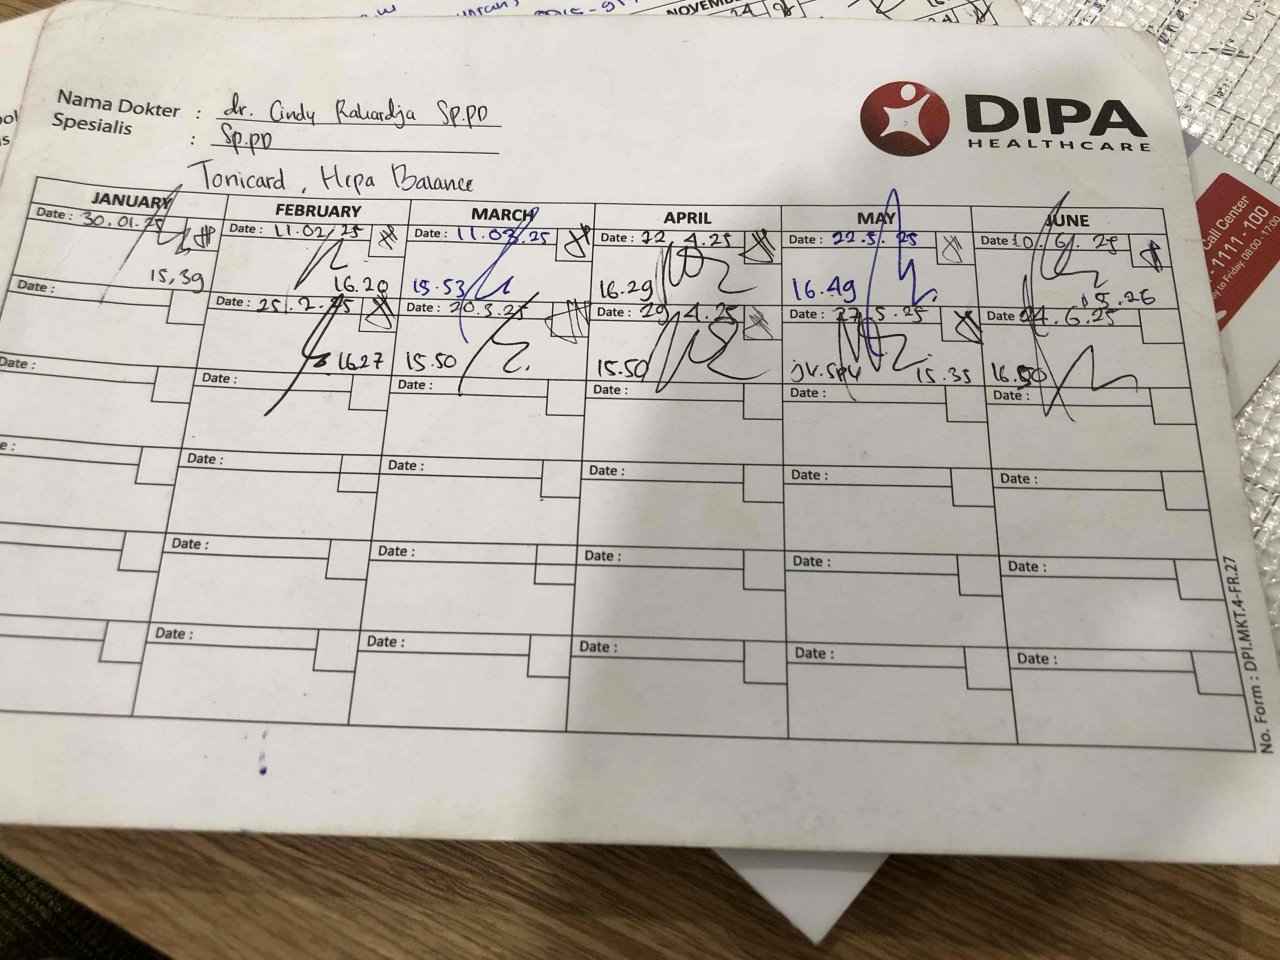 NOVEMBE
Nama Dokter : dr. Cindy Sp.PD
Spesialis : Sp.PD
DIPA
HEALTHCARE
Tonicard, Hepa Balance
JANUARY FEBRUARY MARCH APRIL MAY JUNE
Date : 30.01.25 Date : 11.02.25 Date : 11.03.25 Date : 22.4.25 Date : 22.5.25 Date : 10.6.25
15.39 16.20 15.53 16.29 16.49 15.26
Date : Date : 25.2.25 Date : 20.3.25 Date : 29.4.25 Date : 27.5.25 Date : 24.6.25
16.27 15.50 15.50 jv.spv 15.35 16.50
Date : Date : Date : Date : Date : Date :
e : Date : Date : Date : Date : Date :
Date : Date : Date : Date : Date :
Date : Date : Date : Date : Date :
No. Form : DPI.MKT.4-FR.27
Call Center
1111-100
to Friday, 08:00 - 17:00